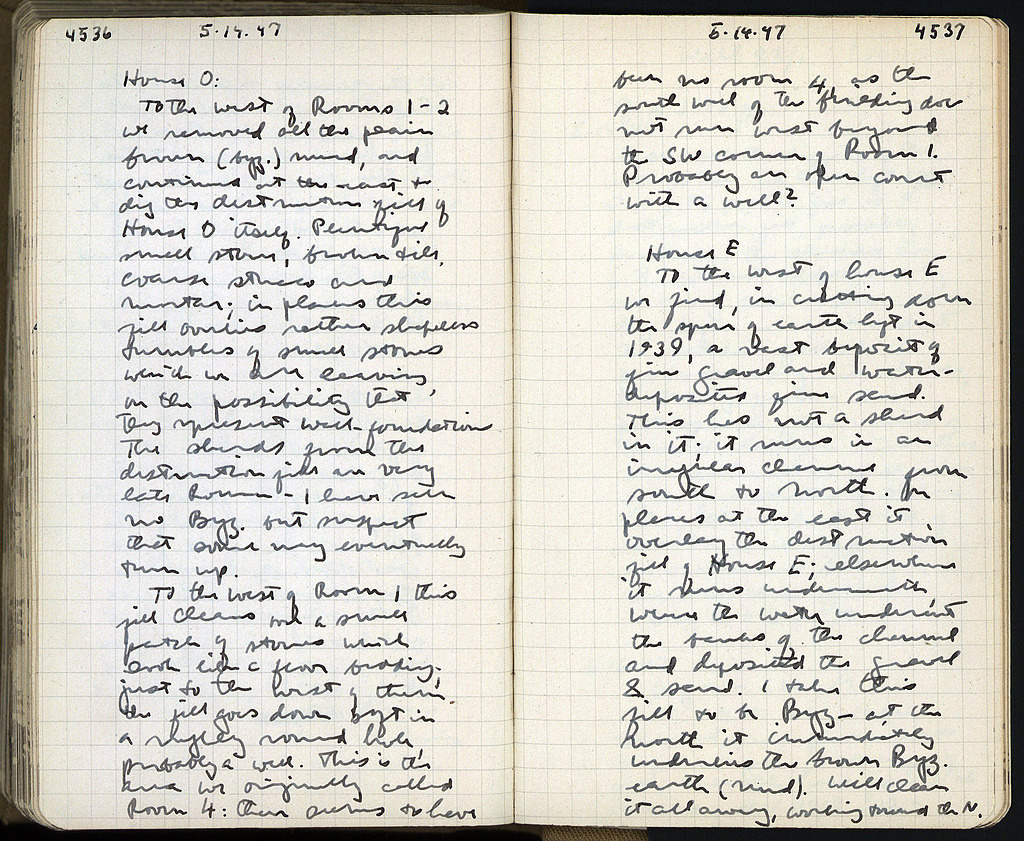 4536 5·14·47
House O:
To the west of Rooms 1-2
we removed all the plain
brown (byz.) mud, and
continued at the east to
dig the destruction fill of
House O itself. Plentiful
small stones, broken tile,
coarse stucco and
mortar; in places this
fill overlies rather shapeless
tumbles of small stones
which we are leaving,
on the possibility that
they represent wall-foundations
The sherds from the
destruction fill are very
late Roman - I have seen
no Byz. but suspect
that some may eventually
turn up.
To the west of Room 1 this
fill cleans and a small
patch of stones which
look like a floor bedding.
just to the west of them
the fill goes down in
a roughly round hole,
probably a well. This is the
area we originally called
Room 4: there seems to have
5·14·47 4537
been no room 4, as the
south wall of the building does
not run west beyond
the SW corner of Room 1.
Probably an open court
with a well?
House E
To the west of house E
we find, in cutting down
the spur of earth left in
1939, a vast deposit of
fine gravel and water-
deposited fine sand.
This has not a sherd
in it; it runs in an
irregular channel from
south to north. In
places at the east it
overlay the destruction
fill of House E; elsewhere
it runs underneath,
where the water undercut
the banks of the channel
and deposited the gravel
& sand. I take this
fill to be Byz - at the
north it immediately
underlies the brown Byz.
earth (mud). Will clean
it all away, working toward the N.